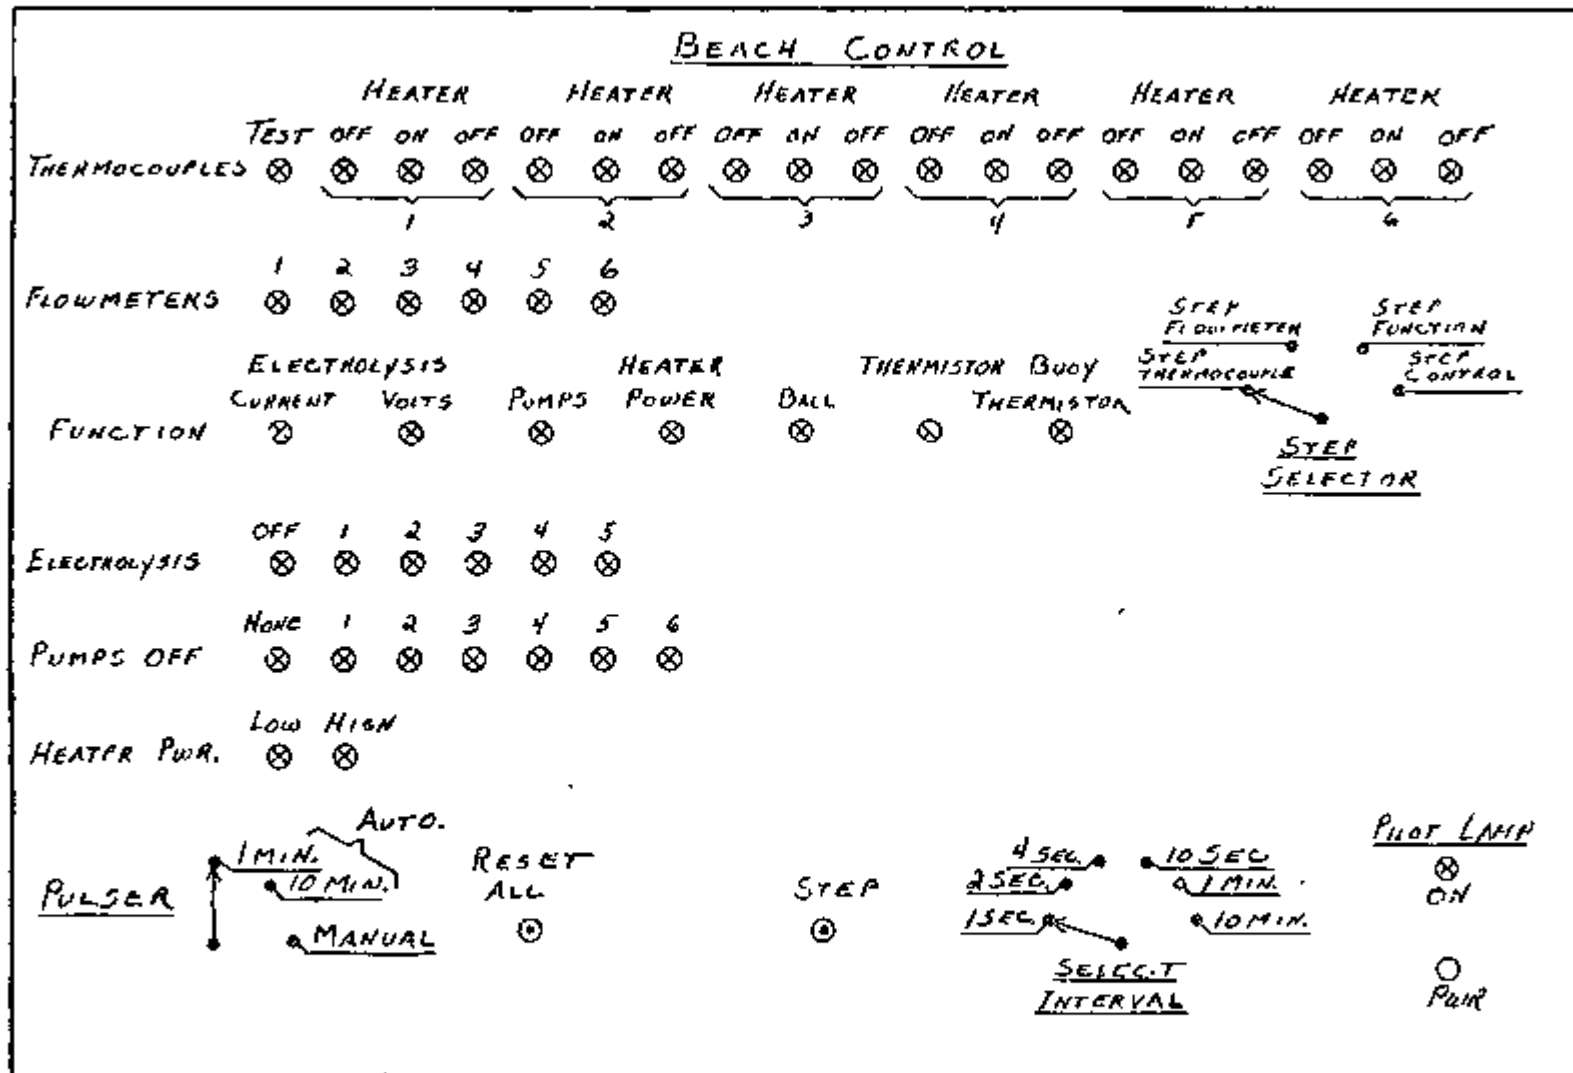 BEACH CONTROL
HEATER HEATER HEATER HEATER HEATER HEATER
TEST OFF ON OFF OFF ON OFF OFF ON OFF OFF ON OFF OFF ON OFF OFF ON OFF
THERMOCOUPLES
1 2 3 4 5 6
1 2 3 4 5 6
FLOWMETERS
STEP FLOWMETER
STEP FUNCTION
STEP THERMOCOUPLE
STEP CONTROL
STEP SELECTOR
ELECTROLYSIS HEATER THERMISTOR BUOY
CURRENT VOLTS PUMPS POWER BALL THERMISTOR
FUNCTION
OFF 1 2 3 4 5
ELECTROLYSIS
NONE 1 2 3 4 5 6
PUMPS OFF
LOW HIGH
HEATER PWR.
AUTO.
1 MIN.
10 MIN.
MANUAL
PULSER
RESET
ALL
STEP
4 SEC. 10 SEC
2 SEC. 1 MIN.
1 SEC. 10 MIN.
SELECT
INTERVAL
PILOT LAMP
ON
PWR